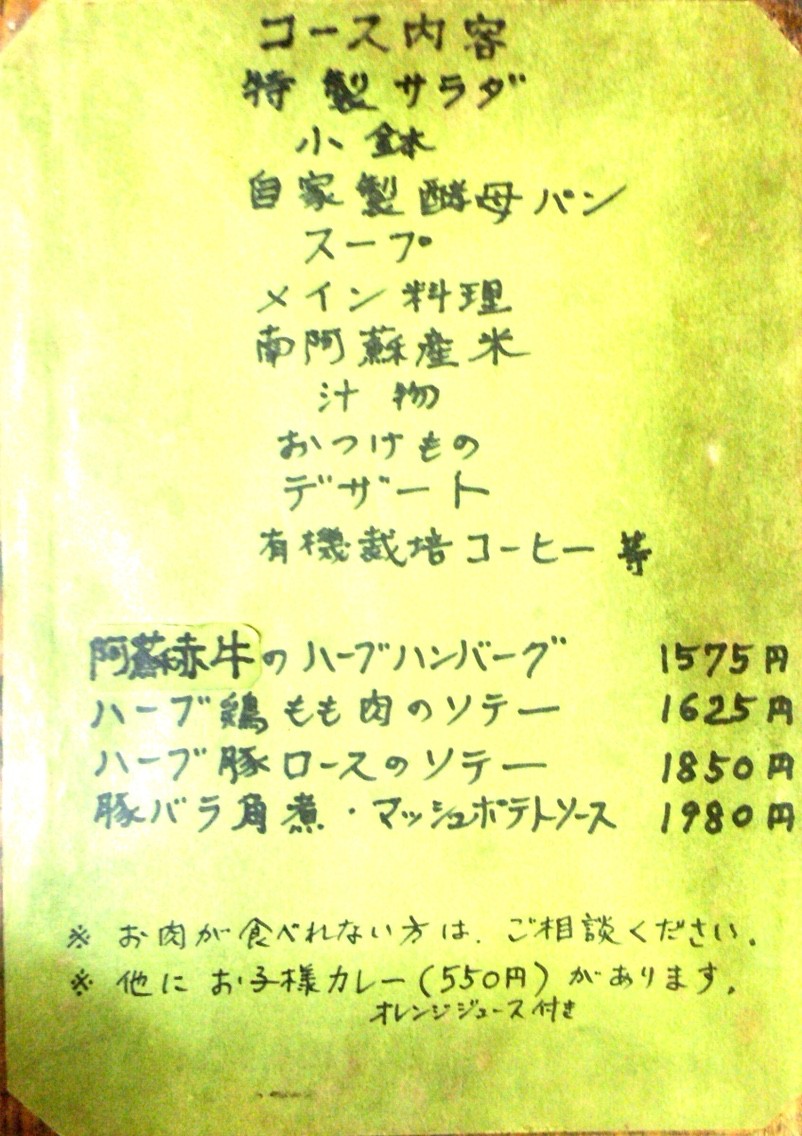 コース内容
特製サラダ
小鉢
自家製酵母パン
スープ
メイン料理
南阿蘇産米
汁物
おつけもの
デザート
有機栽培コーヒー等
阿蘇赤牛のハーブハンバーグ 1575円
ハーブ鶏もも肉のソテー 1625円
ハーブ豚ロースのソテー 1850円
豚バラ角煮・マッシュポテトソース 1980円
※ お肉が食べれない方は、ご相談ください。
※ 他にお子様カレー(550円)があります。
オレンジジュース付き